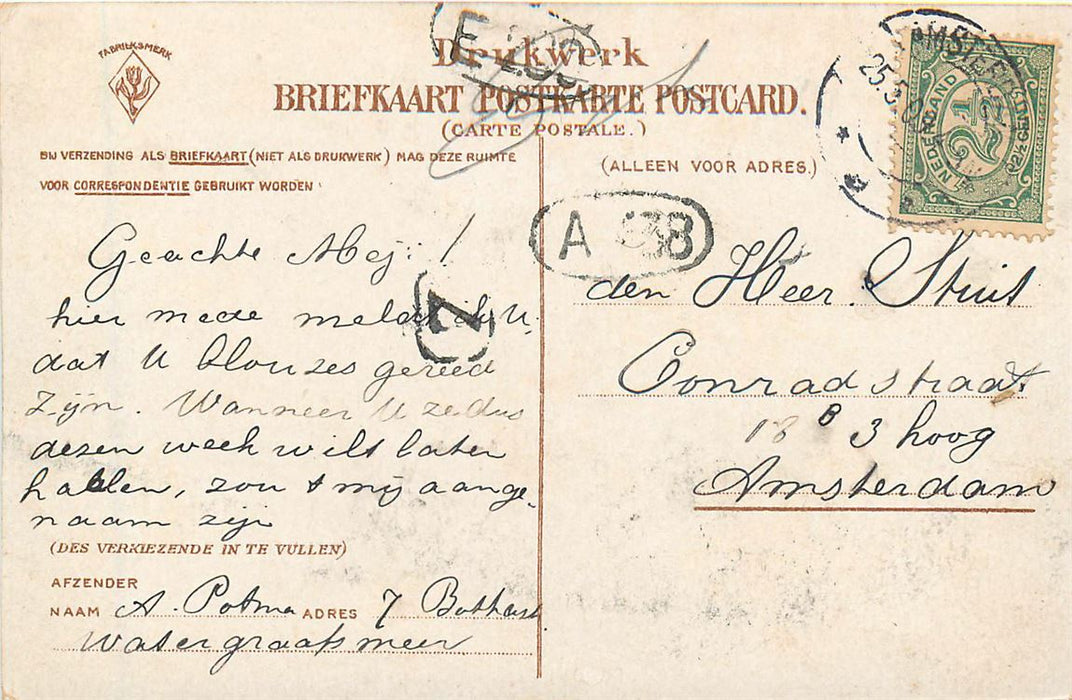 FABRIEKSMERK
E
Drukwerk
BRIEFKAART POSTKARTE POSTCARD.
(CARTE POSTALE.)
BIJ VERZENDING ALS BRIEFKAART (NIET ALS DRUKWERK) MAG DEZE RUIMTE
VOOR CORRESPONDENTIE GEBRUIKT WORDEN
(ALLEEN VOOR ADRES.)
AMSTERDAM
25.3
NEDERLAND
2½
2½ CENT
Geachte Mej: !
hier mede meld ik U
dat U blouzes gereed
zijn. Wanneer U ze dus
dezen week wilt laten
hallen, zou t mij aange-
naam zijn
(DES VERKIEZENDE IN TE VULLEN)
AFZENDER
NAAM A. Potma ADRES 7
Watergraafsmeer
A 8
Z
den Heer. Struis
Conradstraat
18 B 3 hoog
Amsterdam